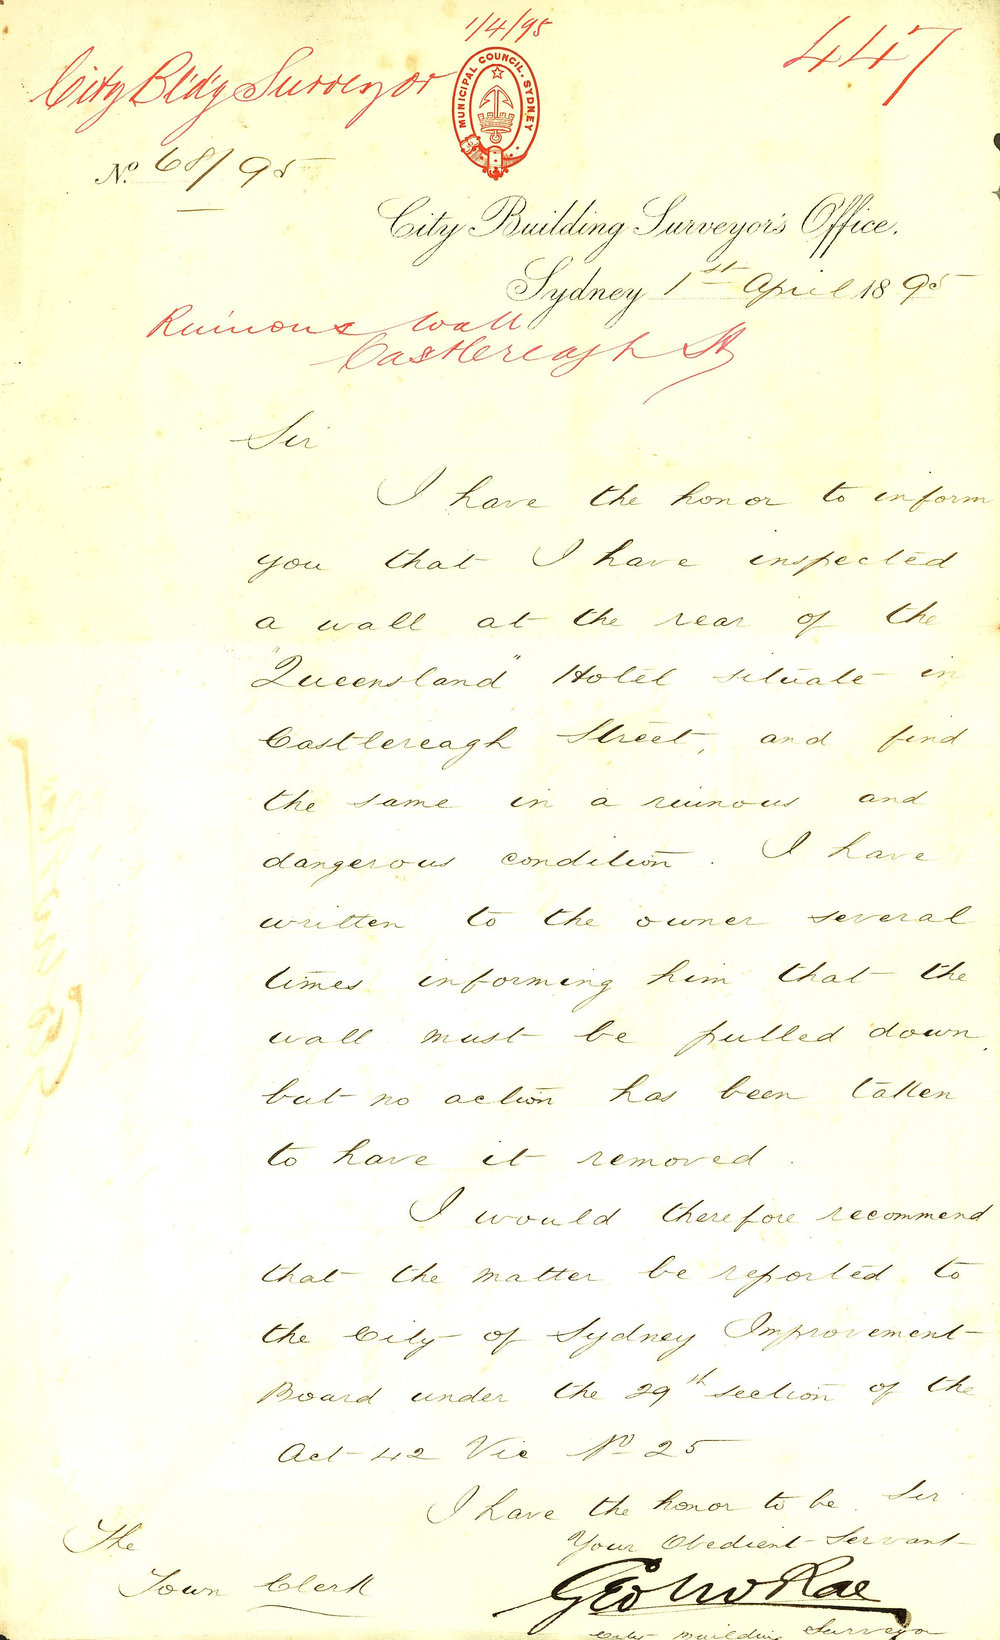 1/4/95
447
City Bldg Surveyor
MUNICIPAL COUNCIL. SYDNEY
No. 68/95
City Building Surveyor's Office.
Sydney 1st April 1895
Ruinous Wall
Castlereagh St
Sir
I have the honor to inform
you that I have inspected
a wall at the rear of the
"Queensland" Hotel situate in
Castlereagh Street, and find
the same in a ruinous and
dangerous condition. I have
written to the owner several
times informing him that the
wall must be pulled down,
but no action has been taken
to have it removed.
I would therefore recommend
that the matter be reported to
the City of Sydney Improvement
Board under the 29th section of the
Act 42 Vic No 25
I have the honor to be Sir
Your Obedient Servant
Geo McRae
City Building Surveyor
The
Town Clerk